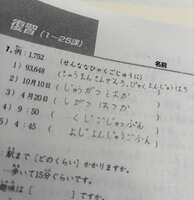 復習(1〜25課)
名前
1. 例:1,752 (せんななひゃくごじゅうに)
1) 93,648 (きゅうまんさんぜんろっぴゃくよんじゅうはち)
2) 10月10日 (じゅうがつとおか)
3) 4月20日 (しがつはつか)
4) 9:50 (くじごじゅっぷん)
5) 4:45 (よじよんじゅうごふん)
駅まで[どのくらい]かかりますか。
…歩いて15分ぐらいです。
[ ]ですか。